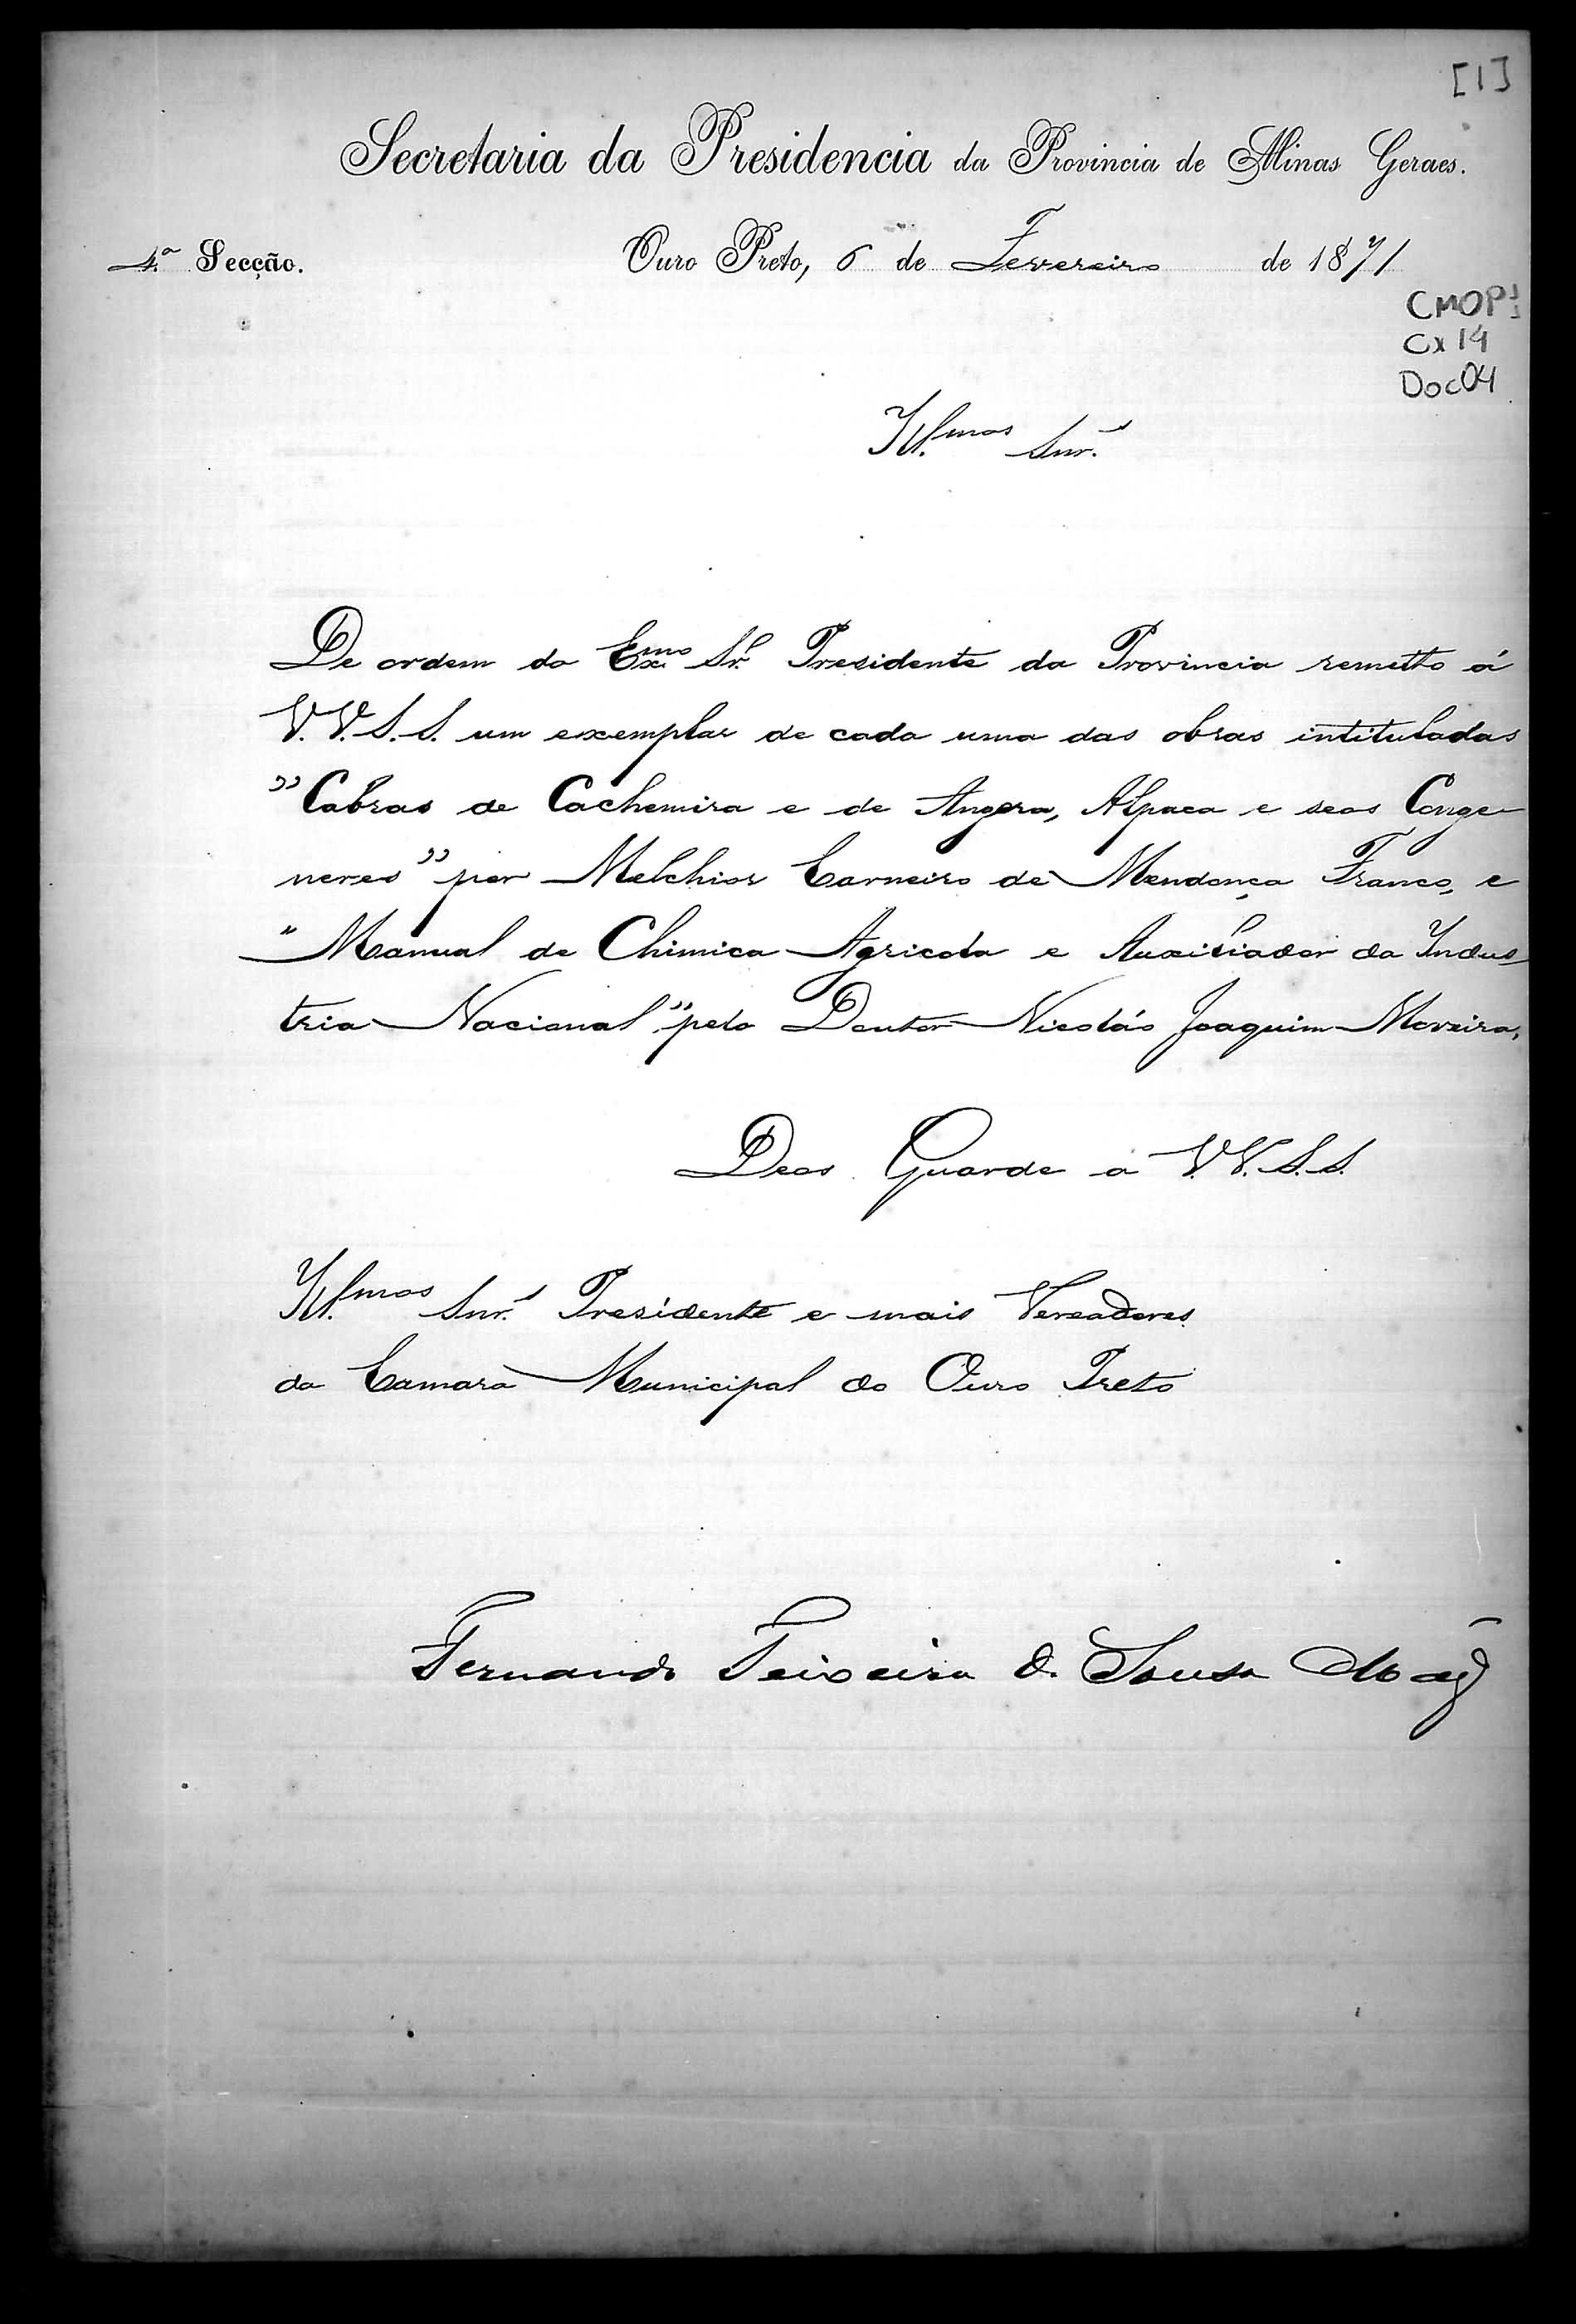 [1]
Secretaria da Presidencia da Provincia de Minas Geraes.
4.ª Secção. Ouro Preto, 6 de Fevereiro de 1871
CMOP
Cx 14
Doc 04
Ill.mos Snr.s
De ordem do Exmo Sr. Presidente da Provincia remetto á
V.V.S.S. um exemplar de cada uma das obras intituladas
"Cabras de Cachemira e de Angora, Alpaca e seos Conge-
neres" por Melchior Carneiro de Mendonça Franco, e
"Manual de Chimica Agricola e Auxiliador da Indus-
tria Nacional" pelo Doutor Nicoláo Joaquim Moreira.
Deos Guarde a V.V.S.S.
Ill.mos Snr.s Presidente e mais Vereadores
da Camara Municipal do Ouro Preto
Fernando Teixeira d. Sousa Mag